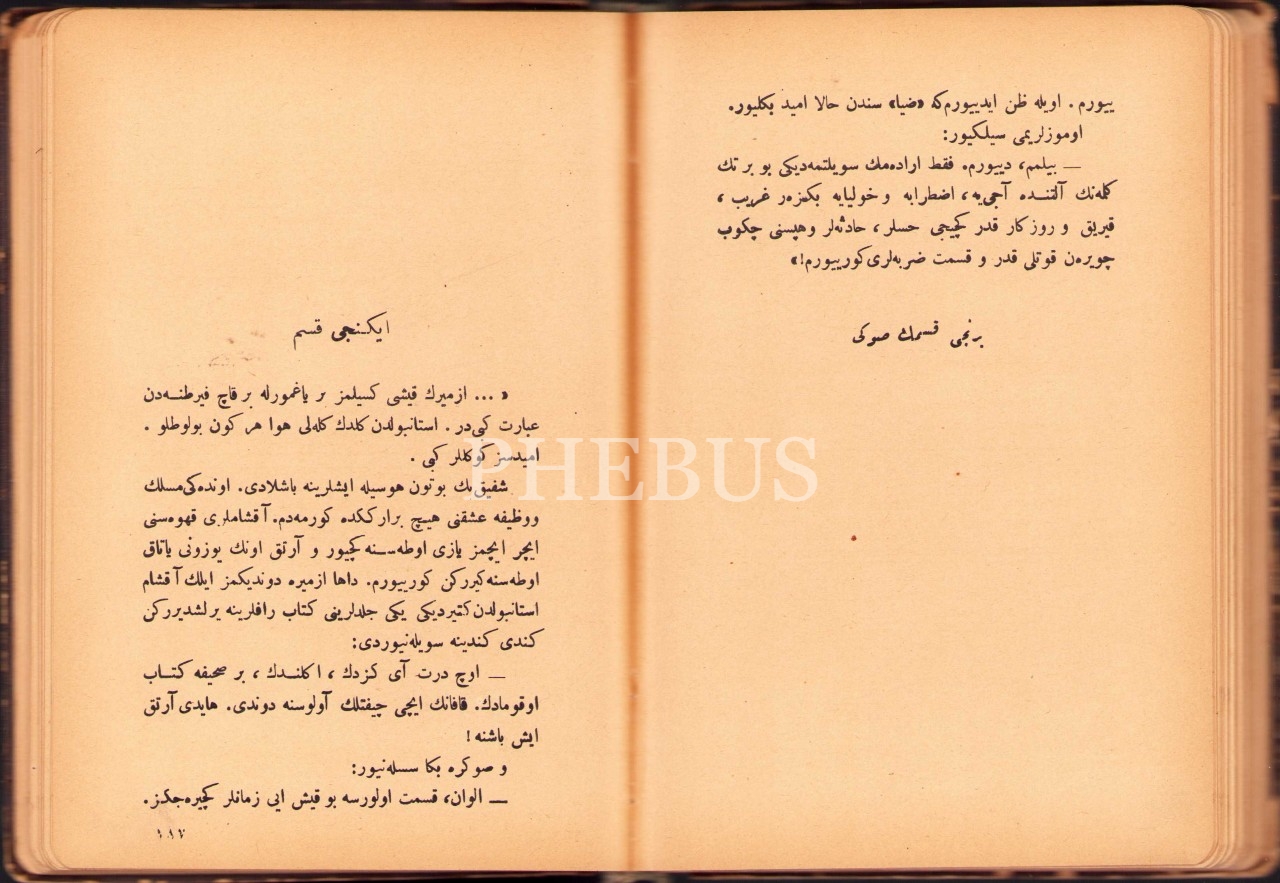 ییورم . اویله ظن ایدییورم‌که «ضیا» سندن حالا امید بکلیور.
اوموزلریمی سیلکیور:
— بیلمم، دییورم. فقط اراده‌مك سویلتمه‌دیکی بو بر تك
کلمه‌نك آلتنده آجی‌یه، اضطرابه و خولیایه بکزه‌ر غریب ،
قیریق و روزکار قدر کچیجی حسلر ، حادثه‌لر وهپسنی چکوب
چویره‌ن قوتلی قدر و قسمت ضربه‌لری کورییورم!»
برنجی قسمك صوکی
ایکنجی قسم
« ... ازمیرك قیشی کسیلمز بر یاغمورله بر قاچ فیرطنه‌دن
عبارت کی‌در . استانبولدن کلدك کله‌لی هوا هر کون بولوطلو .
امیدسز کوکللر کبی .
شفیق‌بك بوتون هوسیله ایشلرینه باشلادی. اونده‌کی مسلك
ووظیفه عشقنی هیچ برارککده کورمه‌دم. آقشاملری قهوه‌سنی
ایچر ایچمز یازی اوطه‌سنه کچیور و آرتق اونك یوزونی یاتاق
اوطه‌سنه کیررکن کورییورم. داها ازمیره دوندیکمز ایلك آقشام
استانبولدن کتیردیکی یکی جلدلرینی کتاب رافلرینه یرلشدیررکن
کندی کندینه سویله‌نیوردی:
— اوچ درت آی کزدك ، اکلندك ، بر صحیفه کتاب
اوقومادك. قافانك ایچی چیفتلك آولوسنه دوندی. هایدی آرتق
ایش باشنه !
و صوکره بکا سسله‌نیور:
— الوان، قسمت اولورسه بو قیش ایی زمانلر کچیره‌جکز.
١٨٧
PHEBUS